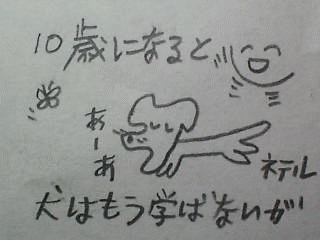 10歳になると
あーあ
ネテル
犬はもう学ばないが